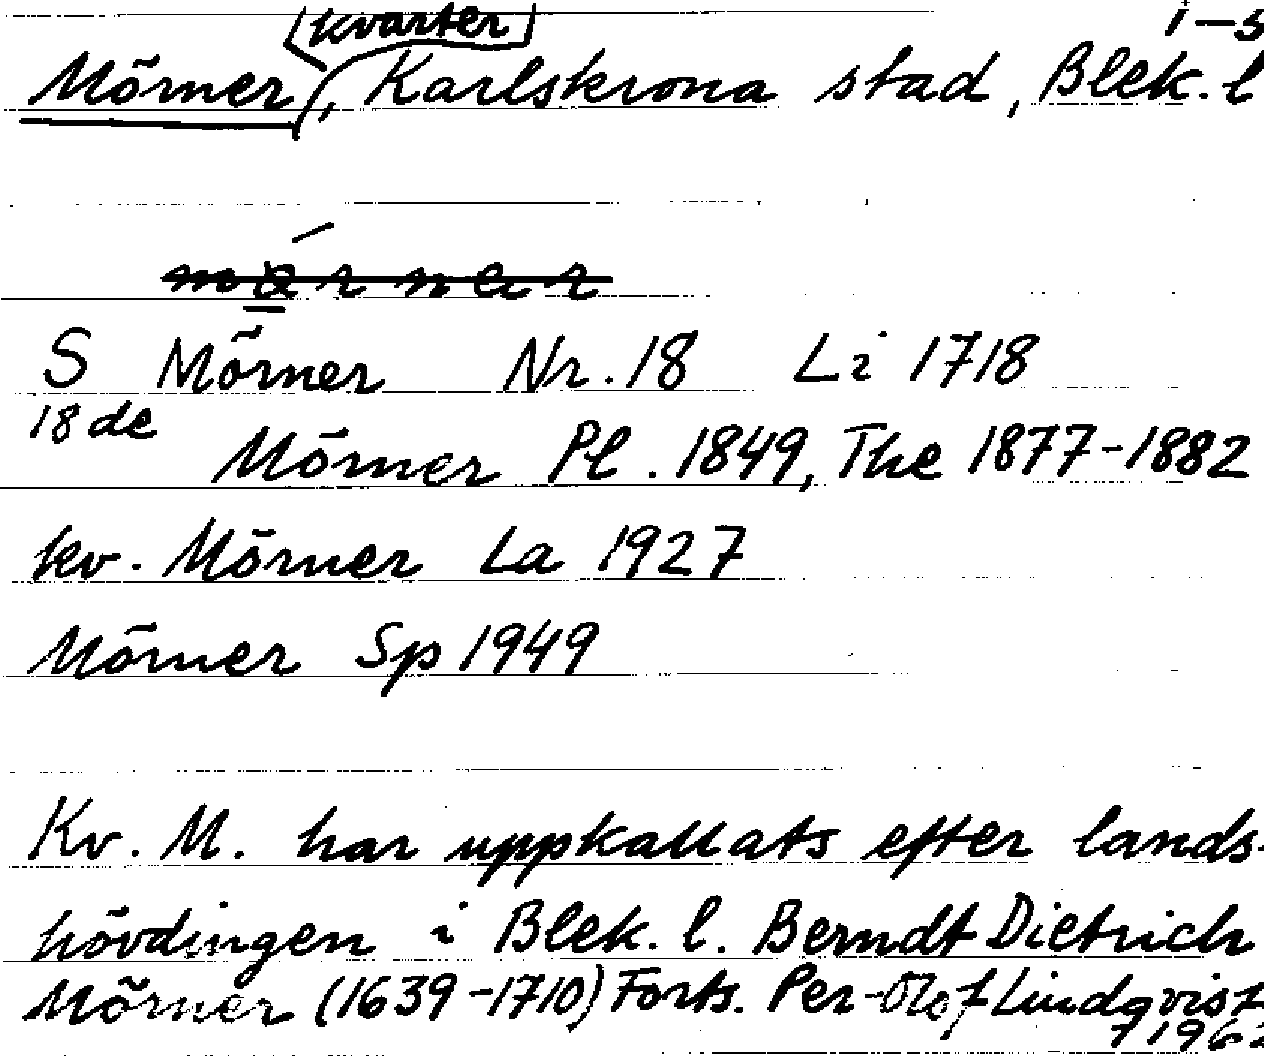 kvarter
Mörner, Karlskrona stad, Blek. l
mörnar
S Mörner Nr. 18 Li 1718
18de
Mörner Pl. 1849, The 1877-1882
kv. Mörner La 1927
Mörner Sp 1949
Kv. M. har uppkallats efter lands-
hövdingen i Blek. l. Berndt Dietrich
Mörner (1639-1710) Forts. Per-Olof Lindqvist